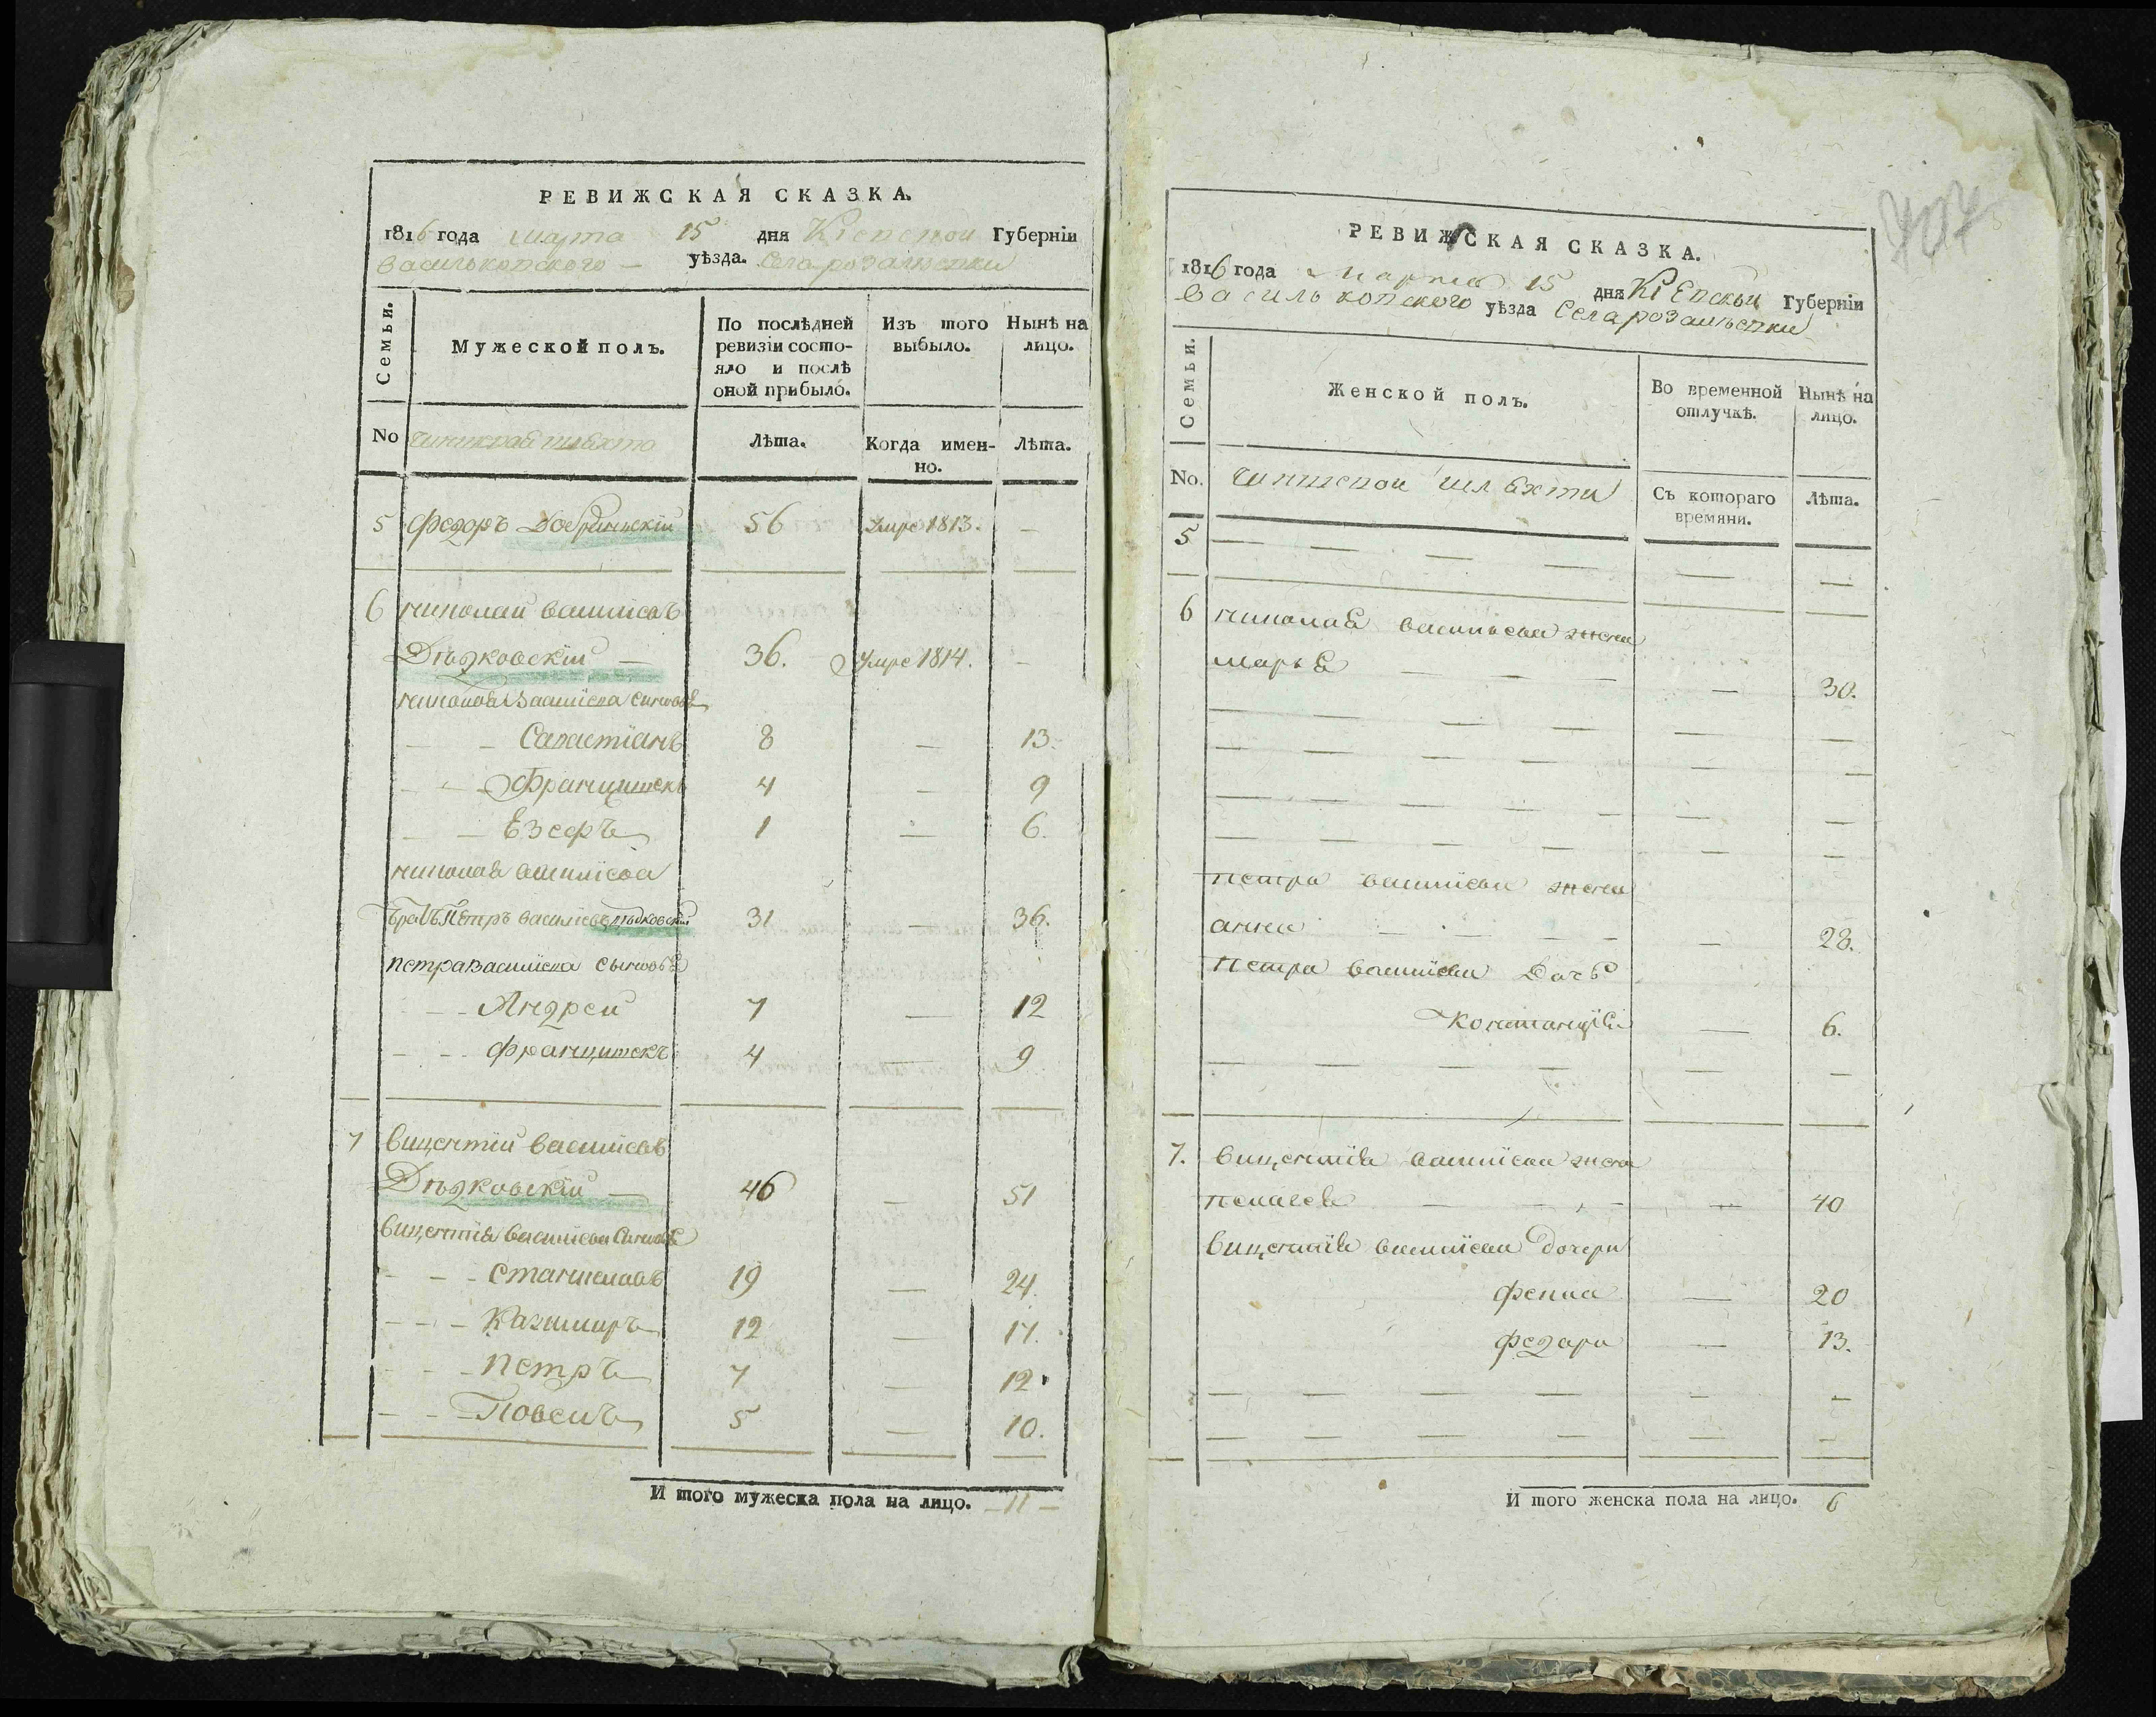 РЕВИЖСКАЯ СКАЗКА.
1816 года марта 15 дня Кіевской Губерніи
васильковского — уѣзда. Села розалиевки
Семьи.
Мужеской полъ.
По послѣдней ревизіи состояло и послѣ оной прибыло.
Изъ того выбыло.
Нынѣ на лицо.
No
Лѣта. Когда именно. Лѣта.
5 Федоръ 56 Умре 1813. —
6 николай василіевъ
Дѣдковскій — 36. Умре 1814. —
николая василіева сыновья
— — Савастіанъ 8 — 13.
— — Францишекъ 4 — 9
— — Езефъ 1 — 6.
николая василіева
братъ Петръ василіевъ дѣдковскій 31 — 36.
петра василіева сыновья
— — Андрей 7 — 12
— — францишекъ 4 — 9
7 вицентій василіевъ
Дѣдковскій — 46 — 51
вицентія василіева сыновья
— — станиславъ 19 — 24.
— — казимиръ 12 — 17.
— — петръ 7 — 12.
— — 5 — 10.
И того мужеска пола на лицо. — 11 —
707
РЕВИЖСКАЯ СКАЗКА.
1816 года марта 15 дня Кіевской Губерніи
васильковского уѣзда Села розалиевки
Семьи.
Женской полъ.
Во временной отлучкѣ.
Нынѣ на лицо.
No. чиншевой шляхти
Съ котораго времяни.
Лѣта.
5 — — — — — —
6 николая василіева жена
марья — — — — 30.
петра василіева жена
анна — — — — 28.
петра василіева дочь
констанція — 6.
7. вицентія василіева жена
пелагея — — — — 40
вицентія василіева дочери
— 20
федора — 13.
И того женска пола на лицо. 6